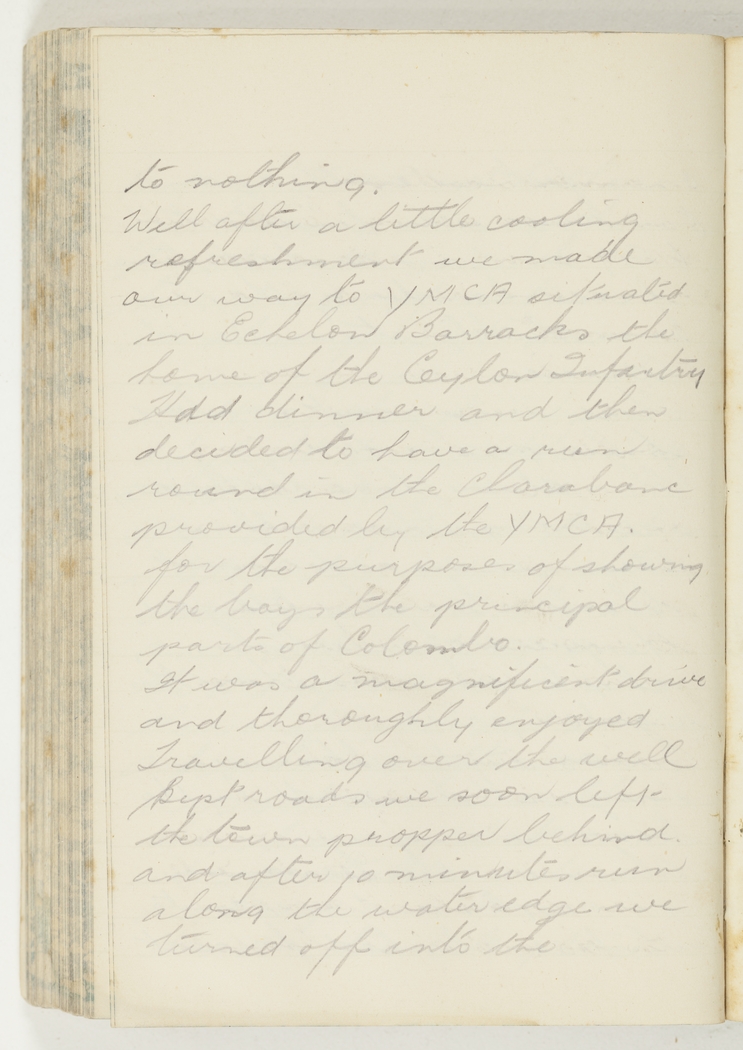 to nothing.
Well after a little cooling
refreshment we made
our way to YMCA situated
in Echelon Barracks the
home of the Ceylon Infantry
Hdd dinner and then
decided to have a run
round in the Charabanc
provided by the YMCA.
for the purposes of showing
the boys the principal
parts of Colombo.
It was a magnificent drive
and thoroughly enjoyed
Travelling over the well
kept roads we soon left
the town propper behind.
and after 10 minutes run
along the water edge we
turned off into the